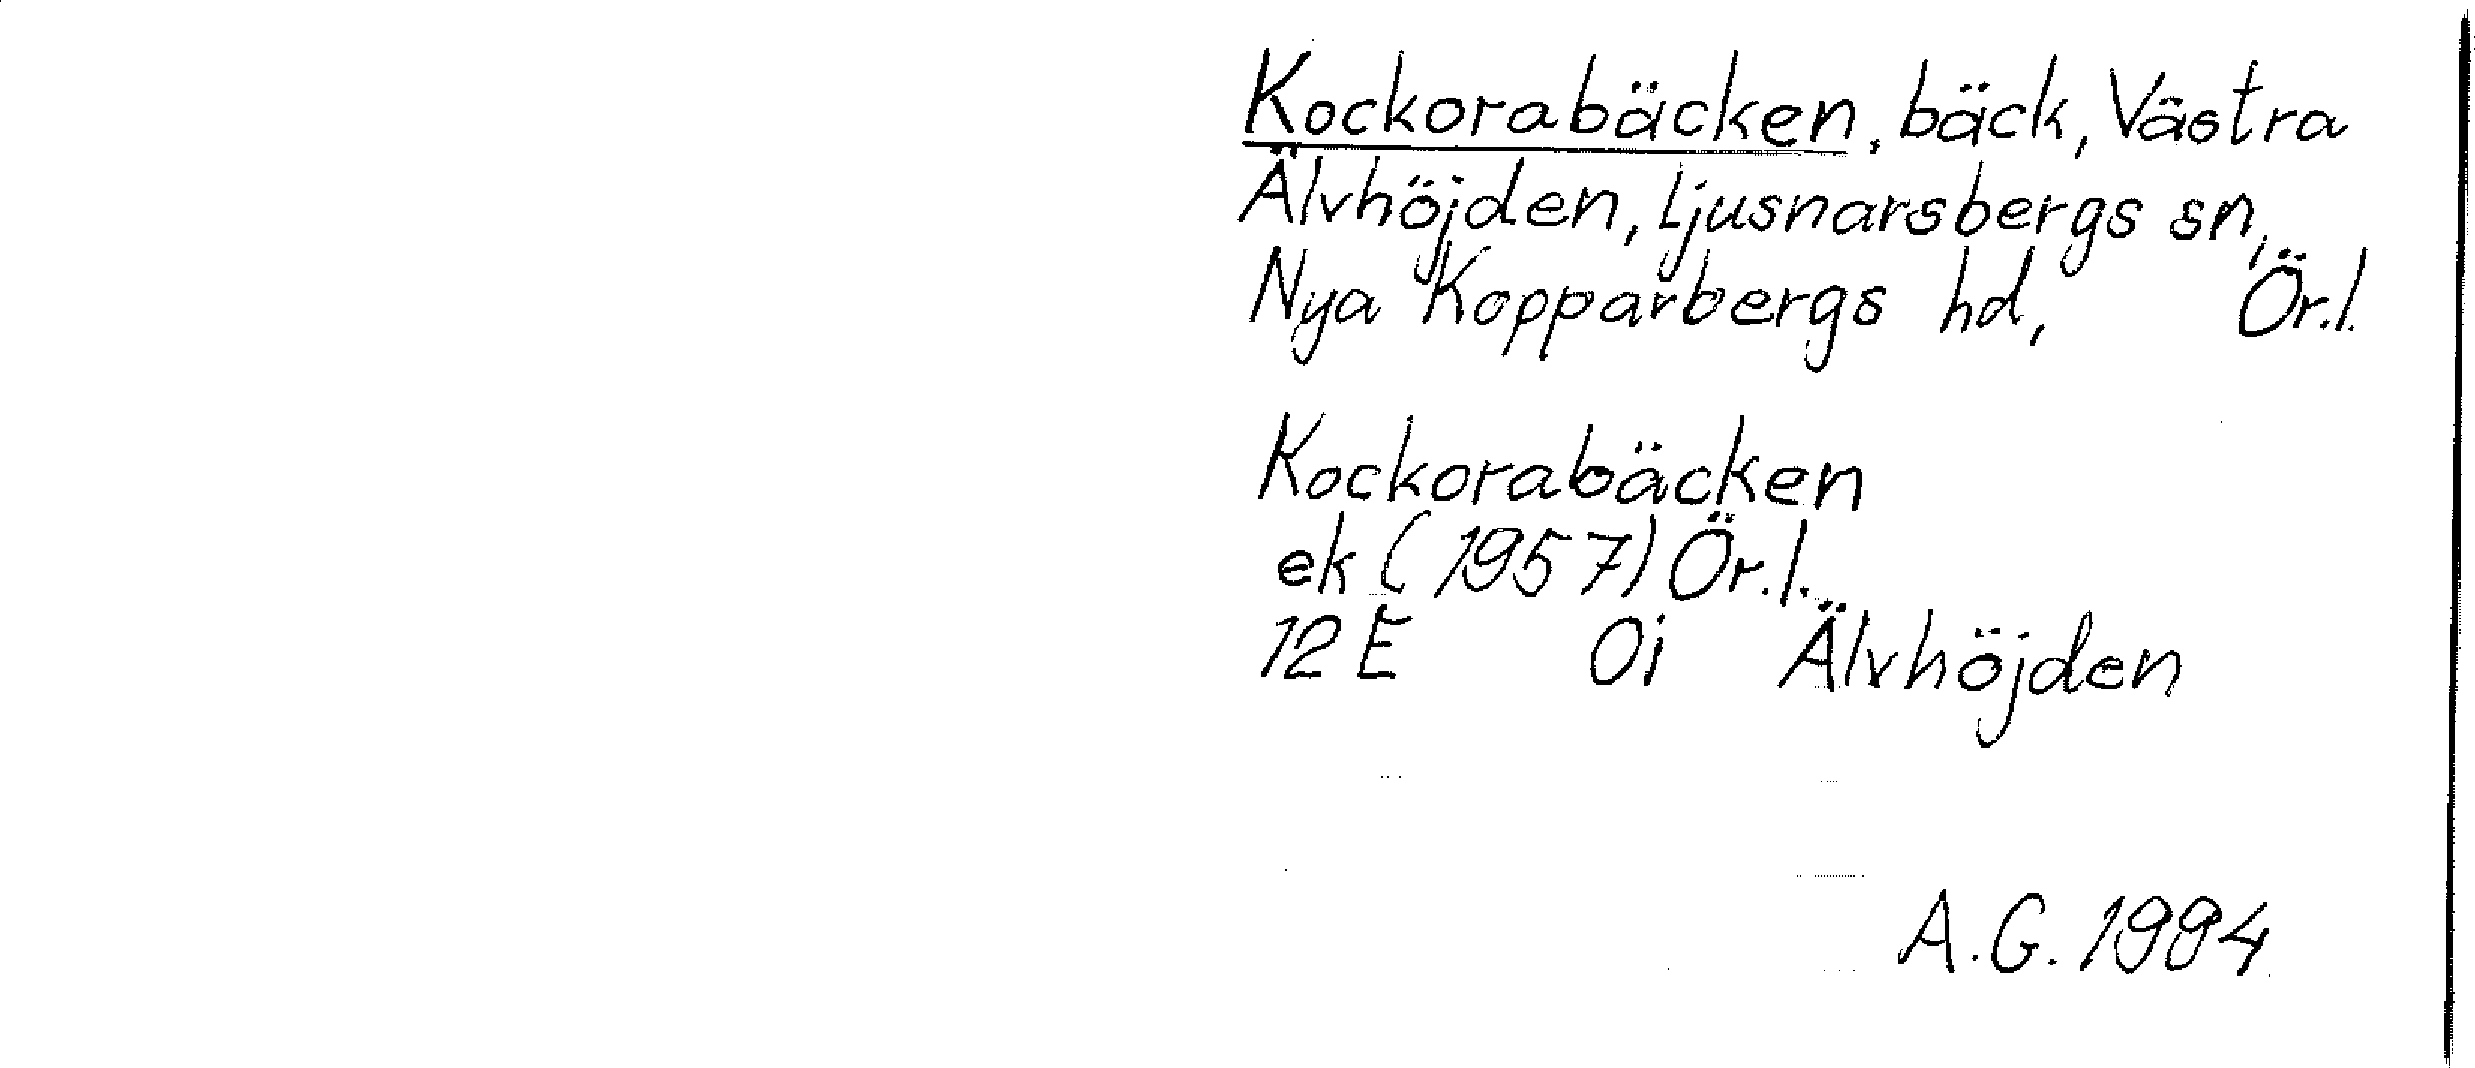 Kockorabäcken, bäck, Västra
Älvhöjden, Ljusnarsbergs sn,
Nya Kopparbergs hd, Ör.l.
Kockorabäcken
ek (1957) Ör.l.
12 E 0i Älvhöjden
A.G. 1994